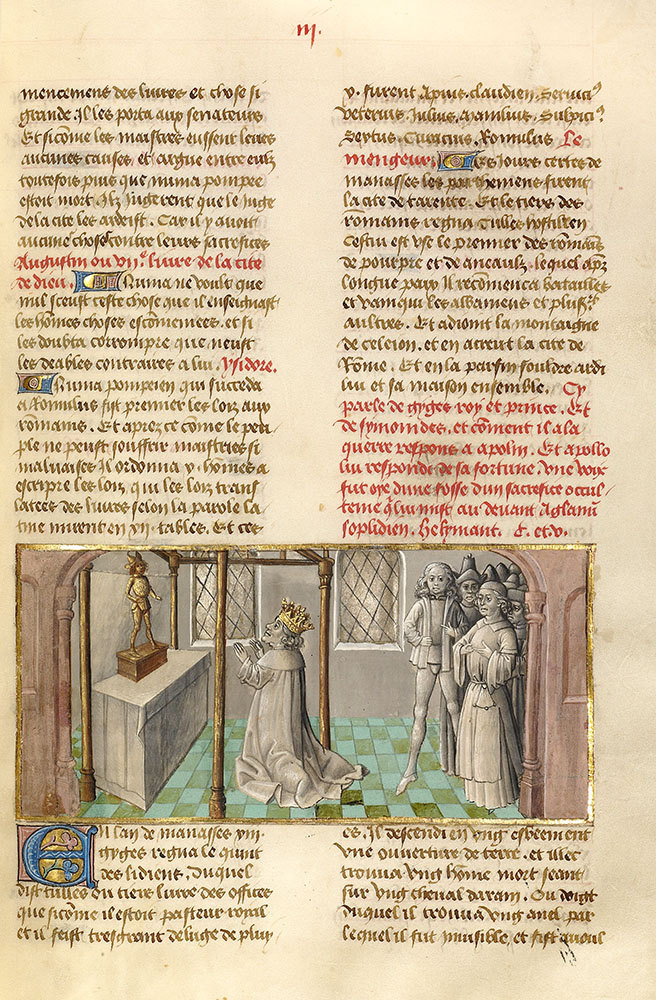 III.
mencemens des livres et chose si
grande Il les porta aux senateurs
Et sicōme les maistres eussent leues
aucunes causes et argue entre eulz
toutesfois puis que numa pompe
estoit mort. Ilz jugerent que le juge
de la cite les ardeist. Car il y avoit
aucune chose contre leurs sacrefices
Augustin ou VIIe livre de la cite
de dieu. Numa ne voult que
nul sceust ceste chose que il enseignast
les hōmes choses escōmeniees. et si
les doubta corrompre que neust
les deables contraires a lui. Ysidore.
Numa pompeien qui succeda
a Romulus fist premier les loix aux
romains. Et aprez ce cōme le peu
ple ne peust souffrir maistries si
malvaises Il ordonna x. hōmes a
escripre les loix qui les loix trans
latees des livres selon la parole la
tine mirent en xii. tables. Et ces
x. furent Apius. claudien. Servici9
veterius. Iulius. Manilius. Sulpici9
Sextus. Curacius. Romulus Le
mengeur. Es jours certes de
manasses les parthemens firent
la cite de tarente. Et le tiers des
romains regna Tulles hostilien
Cestui est use le premier des romais
de pourpre et de aneaulx. lequel apz
longue paix Il recōmenca batailles
et vainqui les albaniens et plus
aultres. Et adiont la montaigne
de celeion. et en acreut la cite de
Rōme. Et en la parfin fouldre ardi
lui et sa maison ensemble. Cy
parle de gyges roy et prince. Et
de symonides. et cōment il ala
querre respons a apolin. Et apollo
lui responde de sa fortune Une voix
fut oye dune fosse dun sacrefice occul
teme q̄ lui mist au devant Aglamū
soplidien. Helymant. C. et. v.
En lan de manasses xiiii
gyges regna le quint
des lidiens. Duquel
dist tulles ou tiers livre des offices
que sicōme il estoit pasteur royal
et il feist tresgrant deluge de pluy
es. Il descendi en ung esbeement
une ouverture de terre. et illec
trouva ung hōme mort seant
sur ung cheval darain. Ou doigt
duquel il trouva ung anel par
lequel il fut invisible. et fist